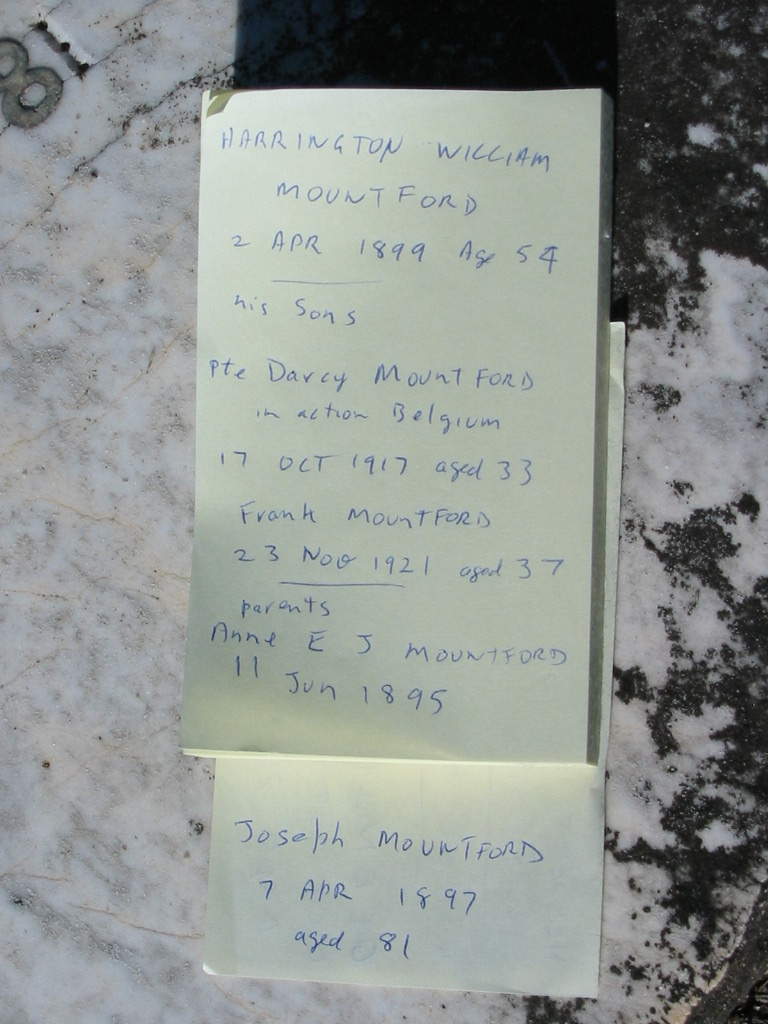 81
HARRINGTON WILLIAM
MOUNTFORD
2 APR 1899 Age 54
his Sons
Pte Darcy MOUNTFORD
in action Belgium
17 OCT 1917 aged 33
Frank MOUNTFORD
23 NOV 1921 aged 37
parents
Anne E J MOUNTFORD
11 Jun 1895
Joseph MOUNTFORD
7 APR 1897
aged 81